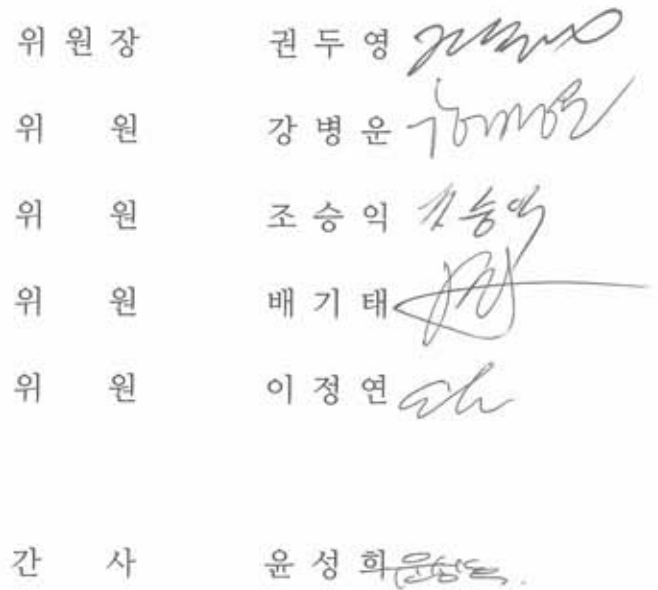 위 원 장 권 두 영
위 원 강 병 운
위 원 조 승 익 조승익
위 원 배 기 태
위 원 이 정 연
간 사 윤 성 희